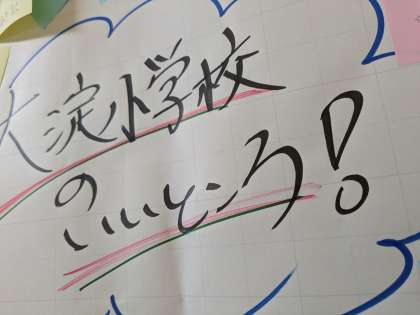 大淀小学校
の
いいところ!